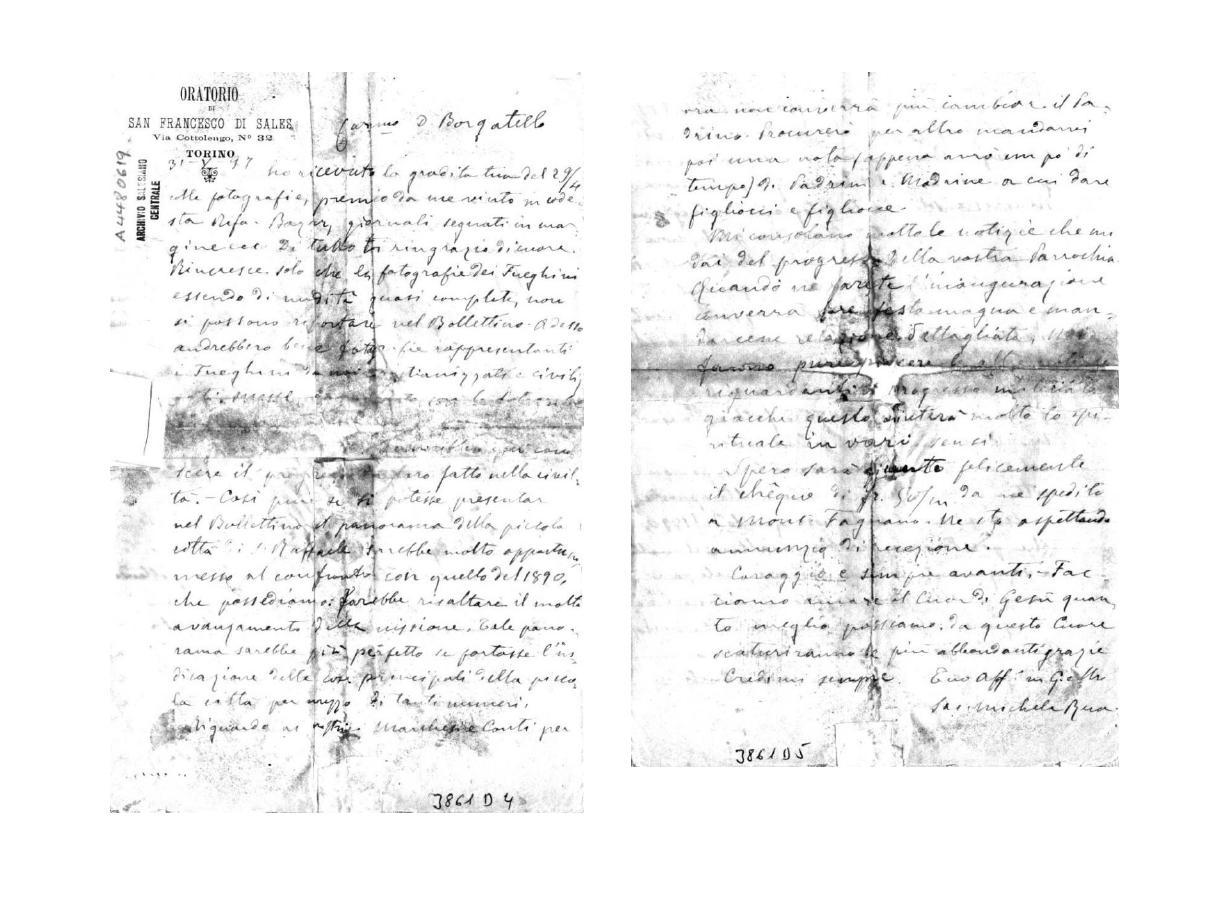 ORATORIO
DI
SAN FRANCESCO DI SALES
Via Cottolengo, Nº 32
TORINO
A4480619
ARCHIVIO SALESIANO
CENTRALE
Carmo D. Borgatello
31-V-97 ho ricevuto la gradita tua del 29/4
colle fotografie, premio da me vinto in code-
sta Rifa. giornali segnati in mar-
gine ecc. Di tutto ti ringrazio di cuore.
Rincresce solo che le fotografie dei Fueghini
essendo di nudità quasi complete, non
si possono riportare nel Bollettino. Adesso
andrebbero bene fotografie rappresentanti
i Fueghini
scere il progresso fatto nella civil-
tà. - Così pure se si potesse presentar
nel Bollettino il panorama della piccola
città di S. Raffaele sarebbe molto opportuno
messo al confronto con quello del 1890,
che possediamo: farebbe risaltare il molto
avanzamento della missione. Tale pano-
rama sarebbe più perfetto se portasse l'in-
dicazione delle cose principali della picco-
la città per mezzo di tanti numeri.
Riguardo ai nostri Marchesi e Conti per
3861 D 4
ora non converrà più cambiar il Pa-
drino. Procurerò per altro mandarvi
poi una nota (appena avrò un po' di
tempo) di Padrini e Madrine a cui dare
figliocci e figliocce.
Mi consolano molto le notizie che mi
dai del progresso della vostra Parrochia.
Quando ne farete l'inaugurazione
converrà fare festa magna e man-
darcene relazione dettagliata.
faranno pure piacere
riguardanti il progresso
giacchè questo aiuterà molto lo spi-
rituale in vari sensi.
Spero sarà giunto felicemente
il chèque di fr. 50/m da me spedito
a Mons. Fagnano. Ne sto aspettando
annunzio di recezione.
Coraggio e sempre avanti. - Fac-
ciamo amare il Cuor di Gesù quan-
to meglio possiamo: da questo Cuore
scaturiranno le più abbondanti grazie
Credimi sempre. Tuo Aff. in G. e M.
Sac. Michele Rua
3861 D5